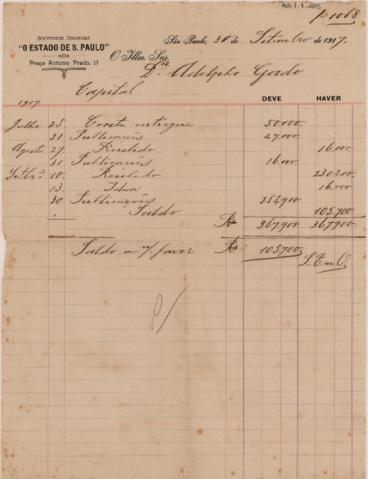 P 1068
SOCIEDADE ANONYMA
"O ESTADO DE S. PAULO"
Praça Antonio Prado, 17
São Paulo, 30 de Setembro de 1917.
O Illm. Snr.
Dr. Adolpho Gordo
Capital
DEVE HAVER
1917
Julho 25. Conta entregue 50.000
31. Publicações 47.000
Agosto 29. Recebido 16.000
31 Publicações 16.000
Setbrº 10. Recebido 230.200
13. Idem 16.000
30. Publicações 254.900
Saldo 105.700
Rs 367.900 367.900
Saldo a n/ favor Rs 105.700
S. E. ou O.